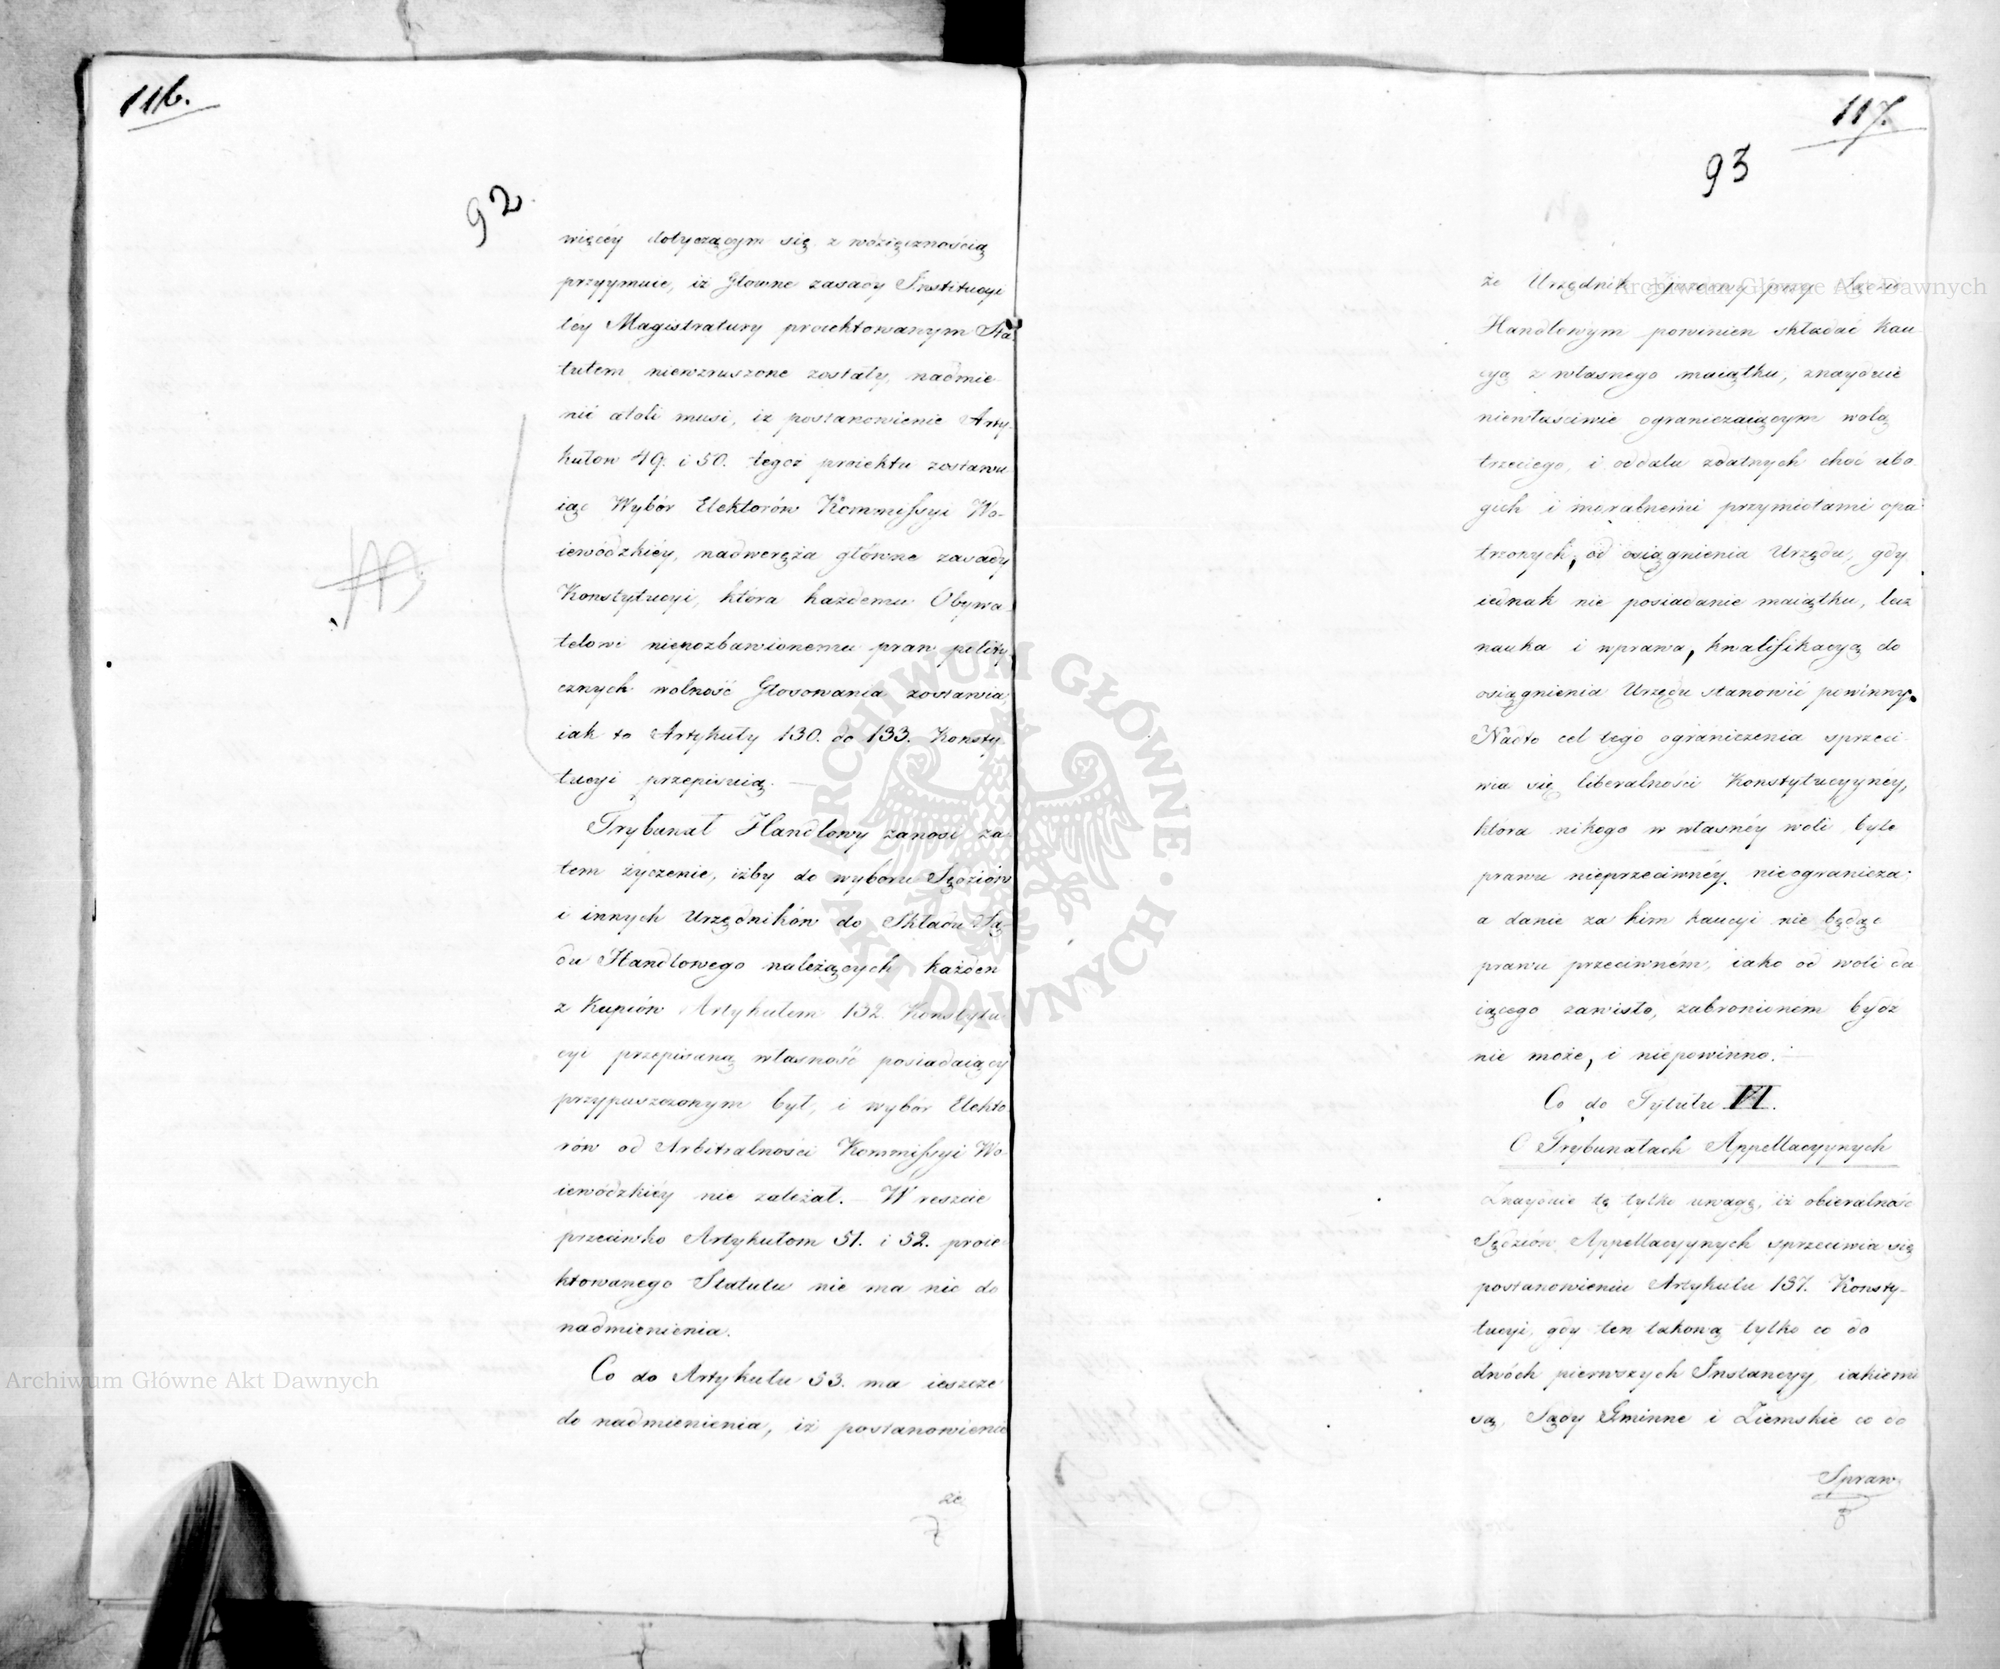 116.
92
więcéy dotyczącym się z wdzięcznością
przyymuie, iż Głowne zasady Instytucyi
téy Magistratury proiektowanym Sta-
tutem niewzruszone zostały, nadmie-
nić atoli musi, iż postanowienie Arty-
kułow 49. i 50. tegoż proiektu zostawu
iąc Wybór Elektorów Kommissyi Wo-
iewódzkiéy, nadweręża główne zasady
Konstytucyi, która każdemu Obywa-
telowi niepozbawionemu praw polity-
cznych wolność Głosowania zostawia,
iak to Artykuły 130. do 133. Konsty-
tucyi przepisuią. —
Trybunał Handlowy zanosi za-
tem życzenie, iżby do wyboru Sędziów
i innych Urzędników do Składu Są-
du Handlowego należących każden
z Kupców Artykułem 132. Konstytu-
cyi przepisaną własność posiadaiący
przypuszczonym był, i wybór Elekto-
rów od Arbitralności Kommissyi Wo-
iewódzkiéy nie zależał. — W reszcie
przeciwko Artykułom 51. i 52. proie-
ktowanego Statutu nie ma nic do
nadmienienia.
Co do Artykułu 53. ma ieszcze
do nadmienienia, iż postanowienie
że
7
117.
93
że Urzędnik przy Sądzie
Handlowym powinien składać kau-
cyą z własnego maiątku, znayduie
niewłaściwie ograniczaiącym wolą
trzeciego, i oddala zdatnych choć ubo-
gich i moralnemi przymiotami opa-
trzonych, od osiągnienia Urzędu, gdy
iednak nie posiadanie maiątku, lecz
nauka i wprawa, kwalifikacyą do
osiągnienia Urzędu stanowić powinny.
Nadto cel tego ograniczenia sprzeci-
wia się liberalności Konstytucyynéy,
która nikogo w własnéy woli byle
prawu nieprzeciwnéy nieogranicza;
a danie za kim kaucyi nie będąc
prawu przeciwném, iako od woli da-
iącego zawisło, zabronionem bydź
nie może, i niepowinno. —
Co do Tytułu VI.
O Trybunałach Appellacyynych
Znayduie tę tylko uwagę, iż obieralność
Sędziów Appellacyynych sprzeciwia się
postanowieniu Artykułu 137. Konsty-
tucyi, gdy ten takową tylko co do
dwóch pierwszych Instancyy, iakiemi
są, Sądy Gminne i Ziemskie co do
Spraw
8
Archiwum Główne Akt Dawnych
Archiwum Główne Akt Dawnych
ARCHIWUM GŁÓWNE · AKT DAWNYCH ·